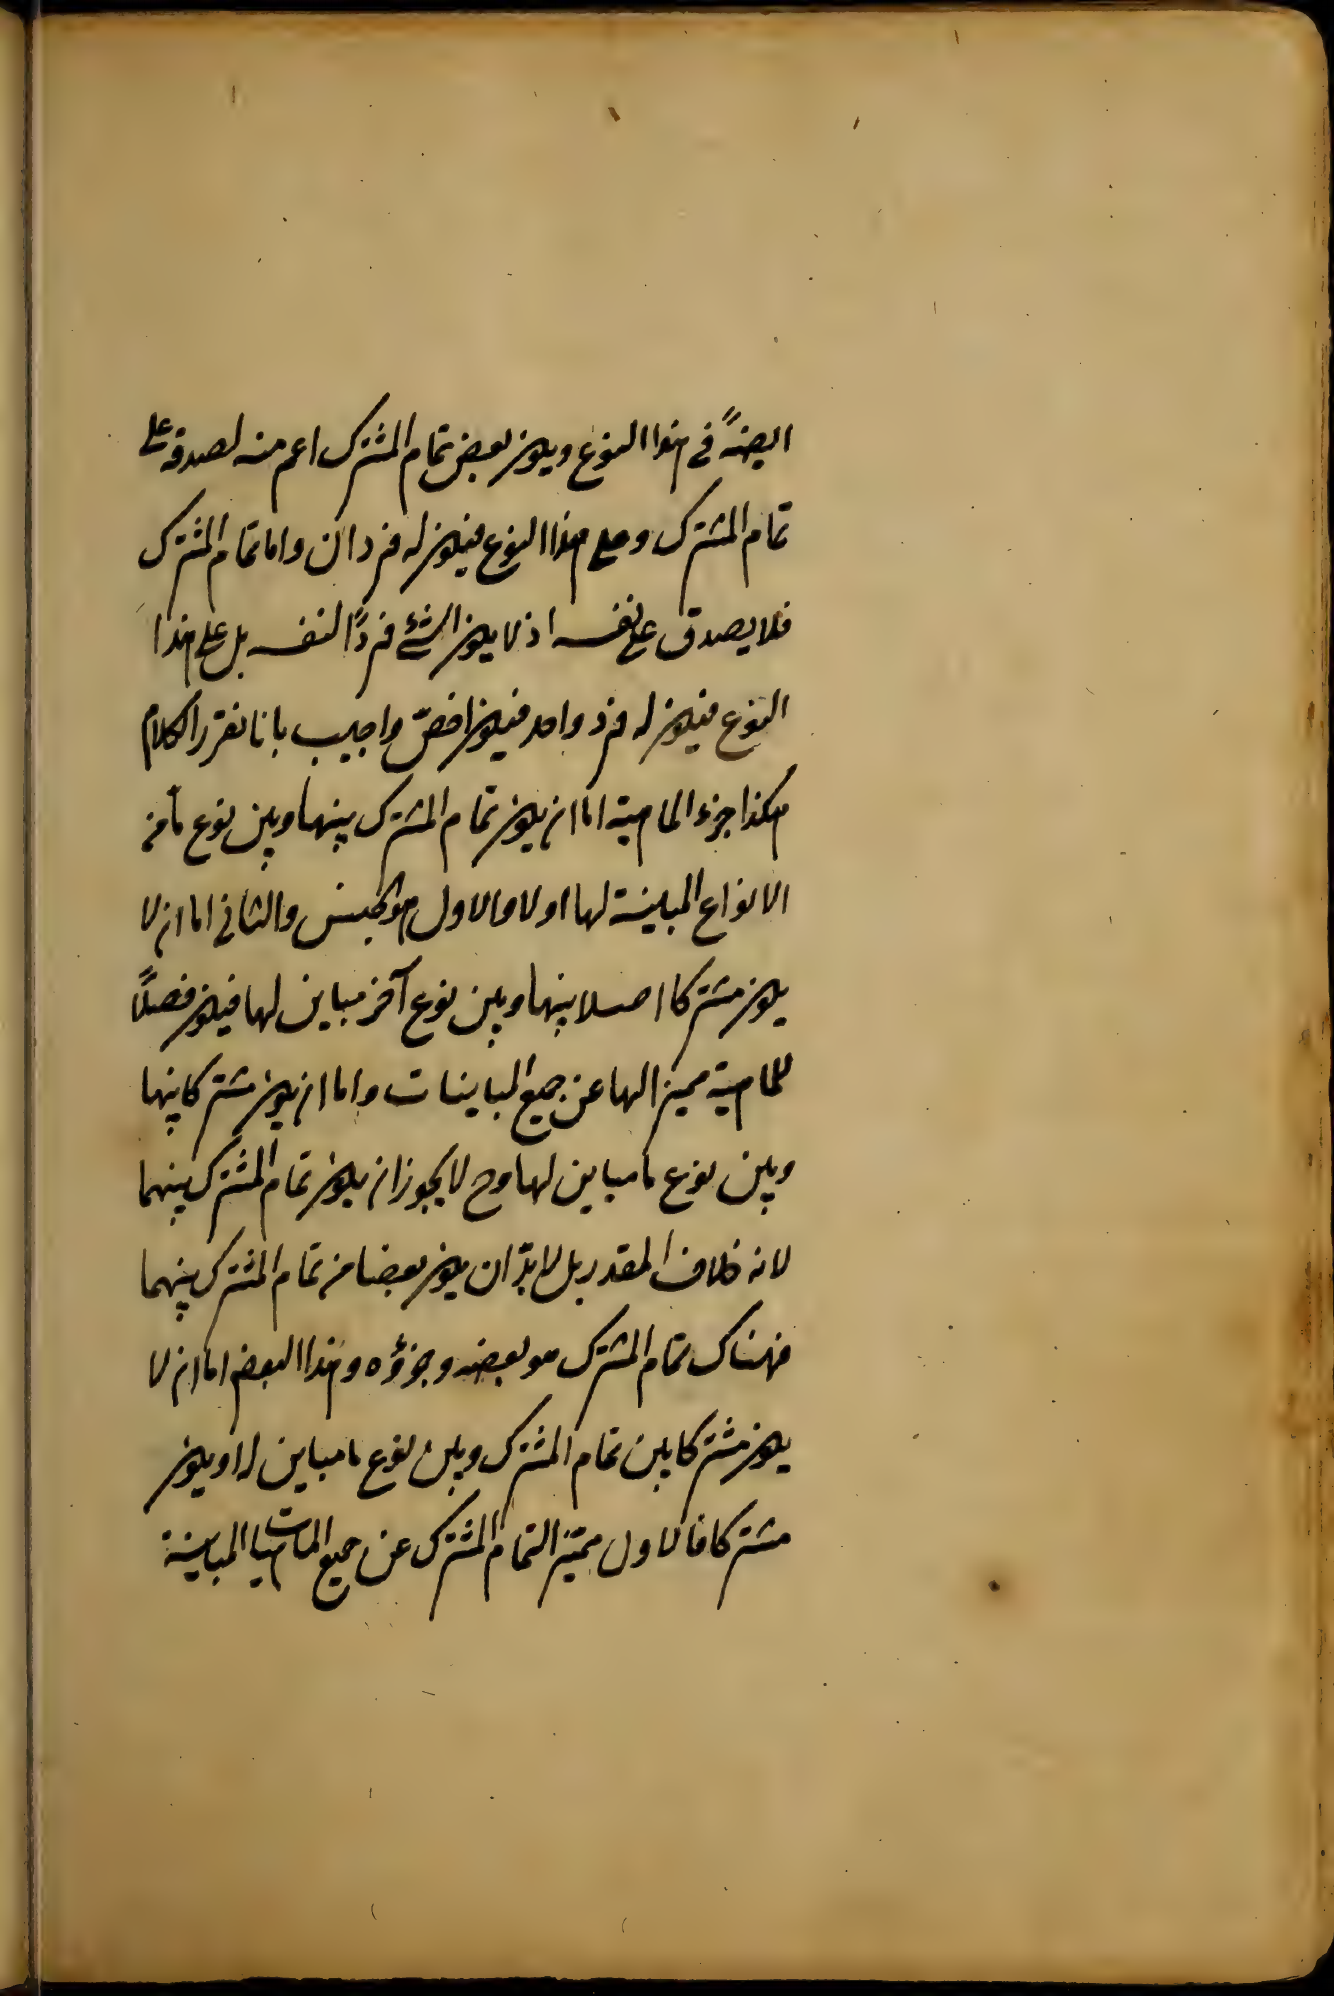 ايضاً في هذا النوع ويكون بعض تمام المشترك اعم منه لصدقه على
تمام المشترك وعلى هذا النوع فيكون له فردان واما تمام المشترك
فلا يصدق على نفسه اذ لا يكون الشئ فرداً لنفسه بل على هذا
النوع فيكون له فرد واحد فيكون اخصّ واجيب بانا نقرر الكلام
هكذا جزء الماهية اما ان يكون تمام المشترك بينها وبين نوع ما من
الانواع المباينة لها او لا والاول هو الجنس والثاني اما ان لا
يكون مشتركا اصلا بينها وبين نوع آخر مباين لها فيكون فصلاً
للماهية مميزا لها عن جميع المباينات واما ان يكون مشتركا بينها
وبين نوع ما مباين لها وح لا يجوز ان يكون تمام المشترك بينهما
لانه خلاف المقدر بل لا بدّ ان يكون بعضا من تمام المشترك بينهما
فهناك تمام المشترك هو بعضه وجزؤه وهذا البعض اما ان لا
يكون مشتركا بين تمام المشترك وبين نوع ما مباين له او يكون
مشتركا فالاول مميّز التمام المشترك عن جميع الماهيات المباينة